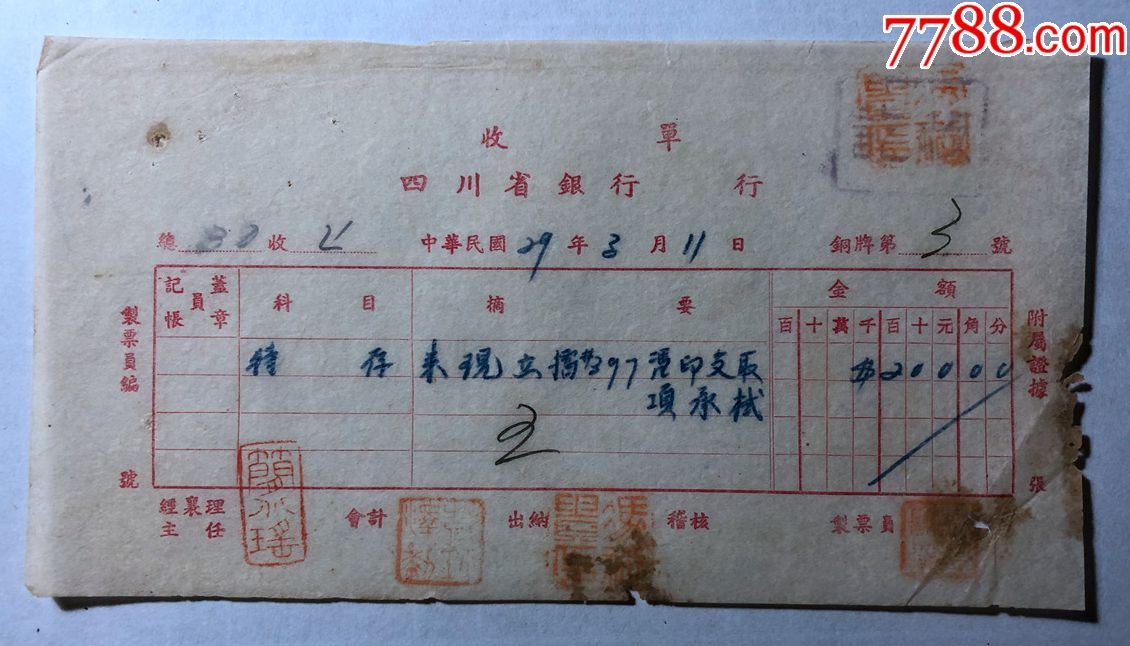 7788.com
收單
四川省銀行 行
總 收 中華民國29年3月11日 銅牌第3號
製票員編 號
記帳員蓋章 科目 摘要 金額
百十萬千百十元角分
特存 來現立摺#397憑印支取 $20000
項承栻
2
附屬證據 張
經襄理
主任 會計 出納 稽核 製票員